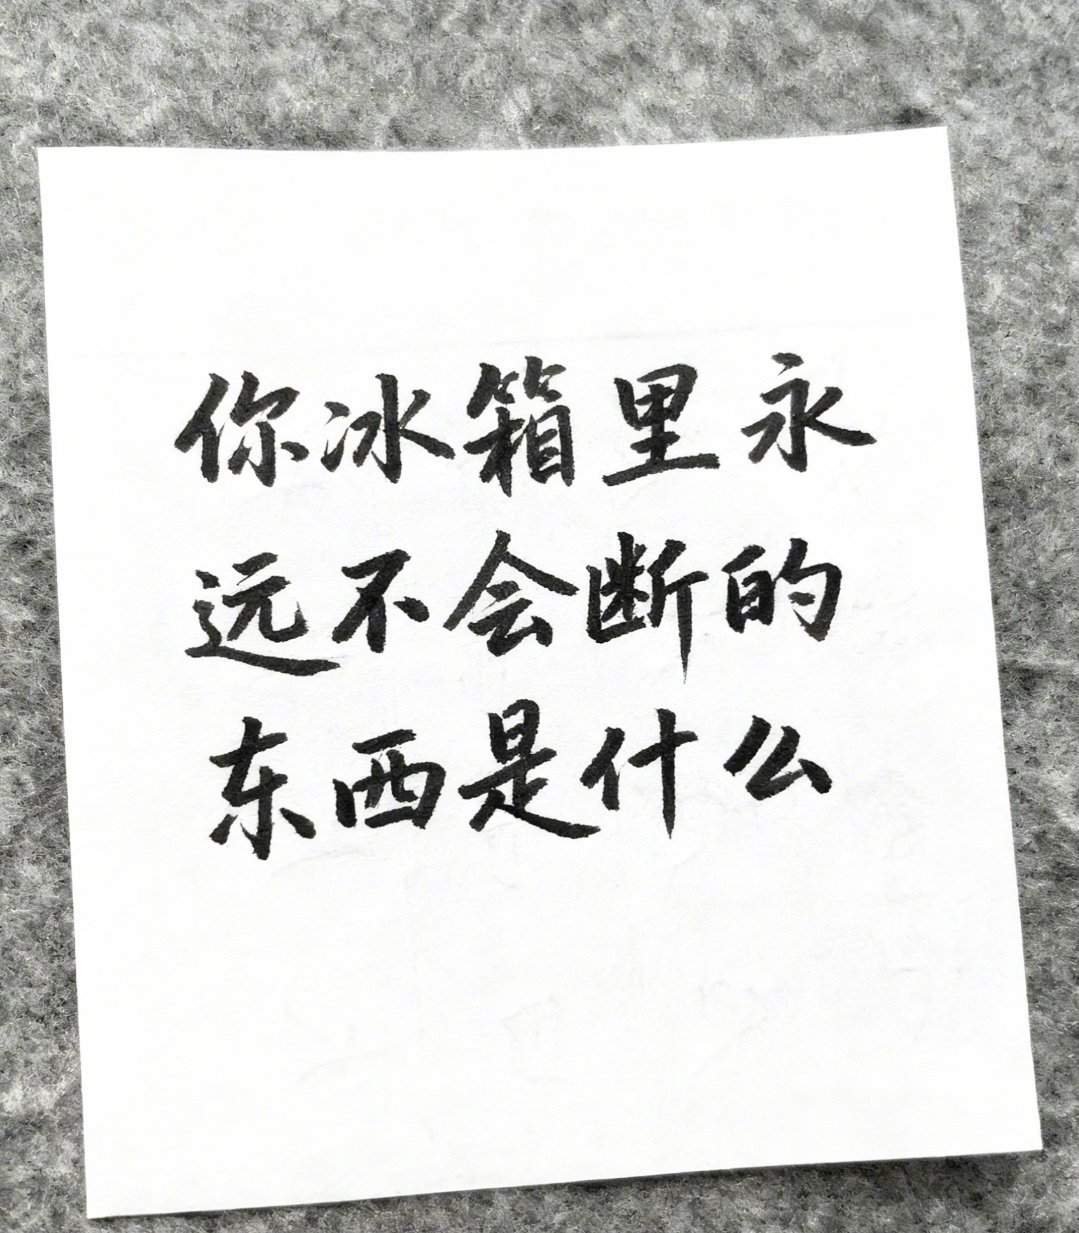 你冰箱里永
远不会断的
东西是什么